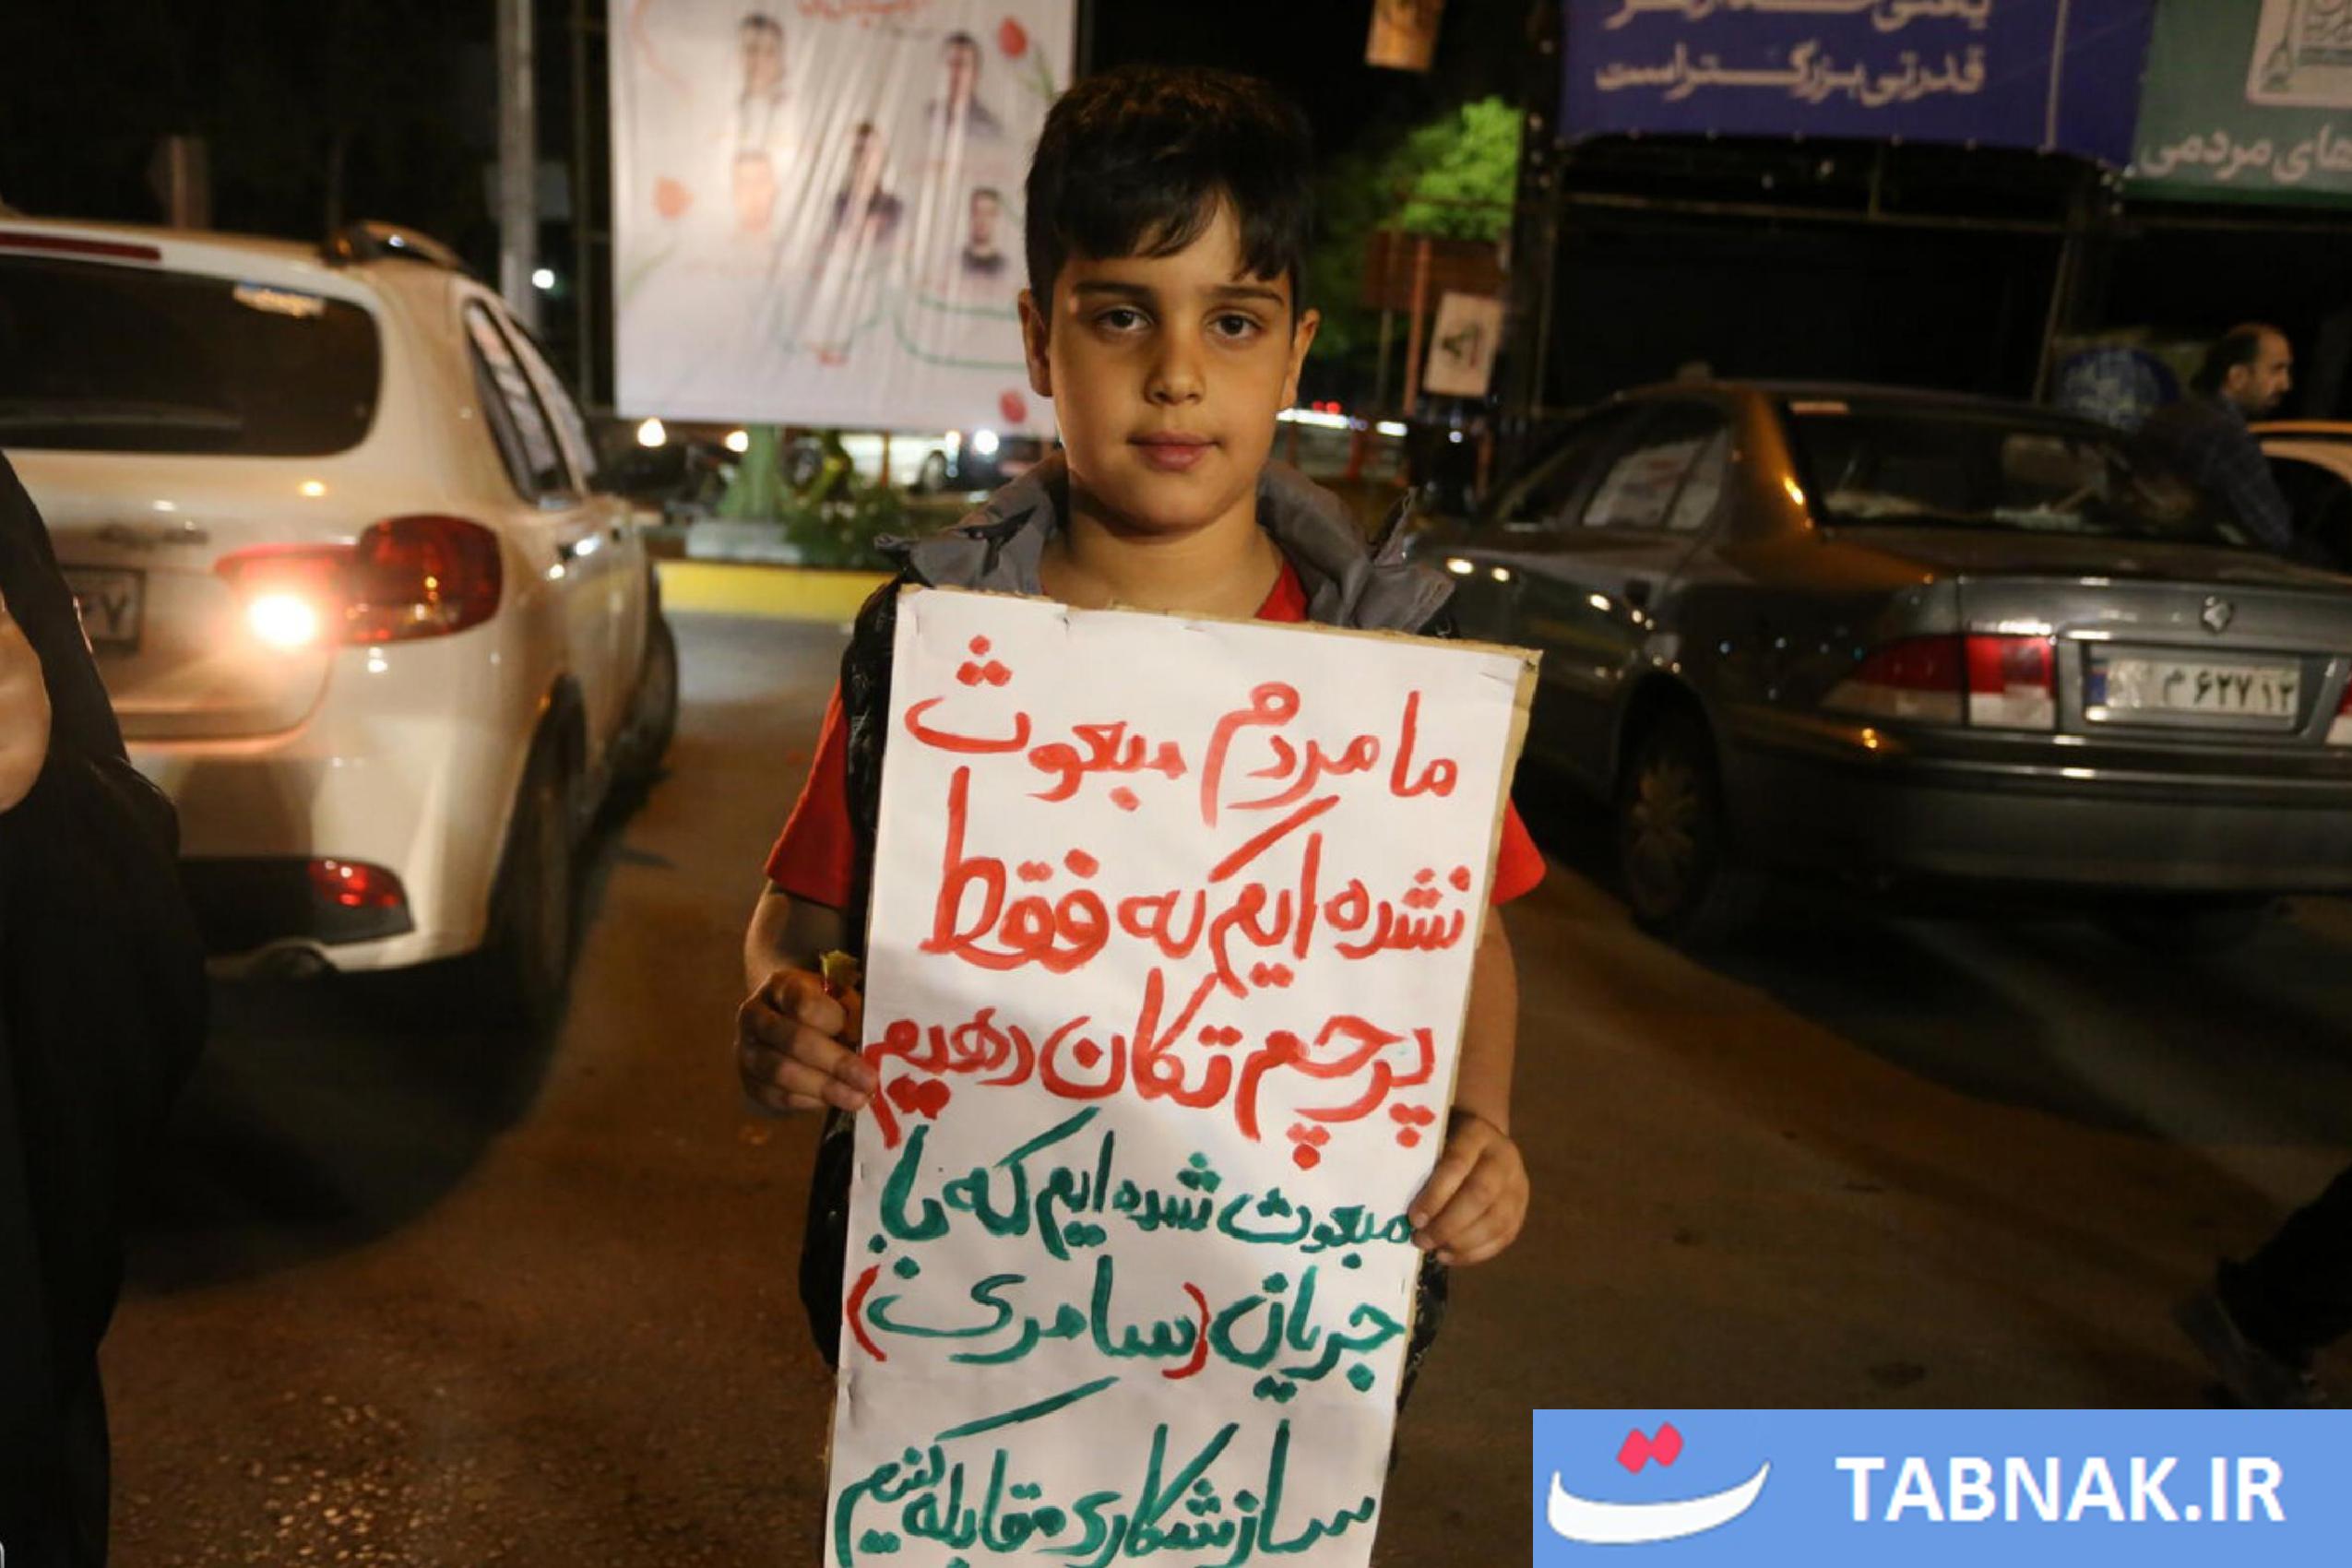 قدرتی بزرگتر است
های مردمی
ما مردم مبعوث
نشده ایم که فقط
پرچم تکان دهیم
مبعوث شده ایم که با
جریان (سامری)
سازشکاری مقابله کنیم
م ۶۲۷ ۱۲
TABNAK.IR